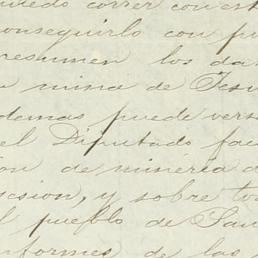 puedo correr con est
conseguirlo con pr
resumen los da
mina de Jesu
demas puede vers
el Diputado fac
ion de mineria d
sesion, y sobre to
l pueblo de San
nformes de las